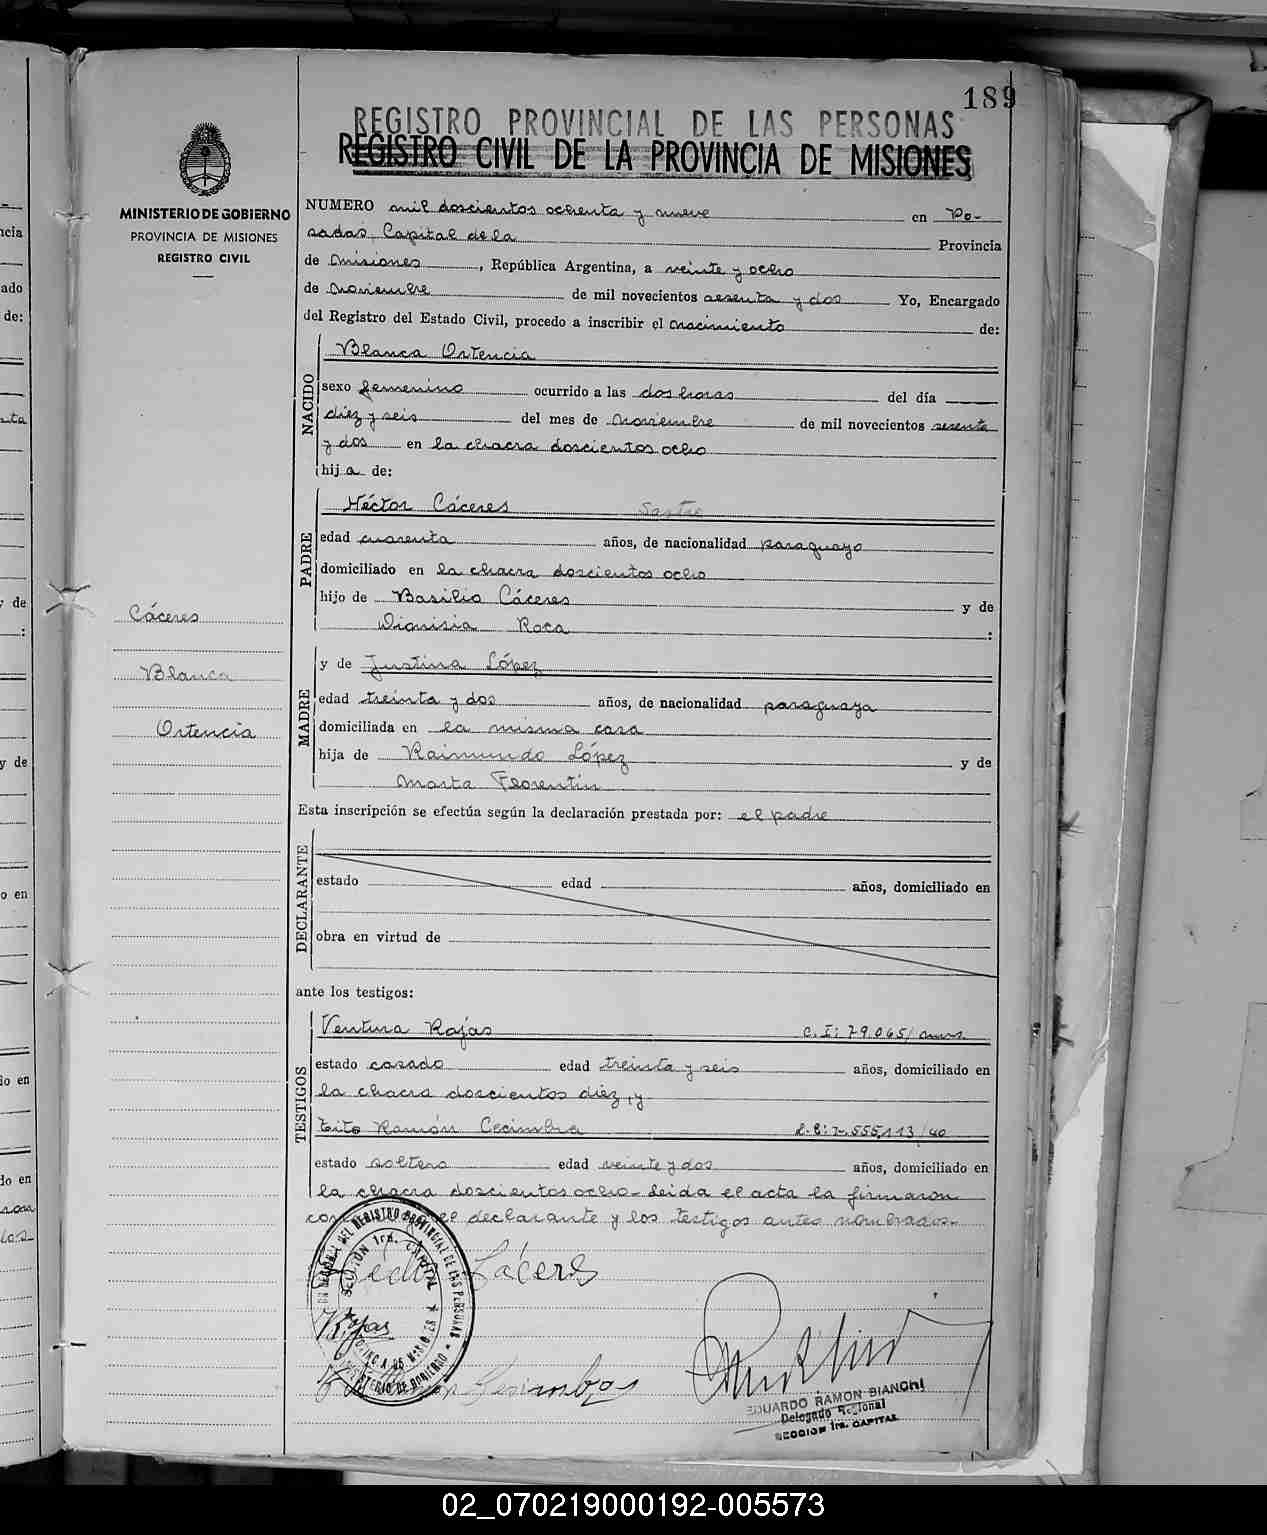 189
REGISTRO PROVINCIAL DE LAS PERSONAS
REGISTRO CIVIL DE LA PROVINCIA DE MISIONES
MINISTERIO DE GOBIERNO
PROVINCIA DE MISIONES
REGISTRO CIVIL
NUMERO mil doscientos ochenta y nueve en Po-
sadas, Capital de la Provincia
de Misiones, República Argentina, a veinte y ocho
de Noviembre de mil novecientos sesenta y dos Yo, Encargado
del Registro del Estado Civil, procedo a inscribir el nacimiento de:
NACIDO
Blanca Ortencia
sexo femenino ocurrido a las dos horas del día
diez y seis del mes de Noviembre de mil novecientos sesenta
y dos en la chacra doscientos ocho
hija de:
PADRE
Héctor Cáceres Sastre
edad cuarenta años, de nacionalidad paraguayo
domiciliado en la chacra doscientos ocho
hijo de Basilio Cáceres y de
Dionisia Roca :
Cáceres
Blanca
Ortencia
MADRE
y de Justina López
edad treinta y dos años, de nacionalidad paraguaya
domiciliada en la misma casa
hija de Raimundo López y de
Marta Florentín
Esta inscripción se efectúa según la declaración prestada por: el padre
DECLARANTE
estado edad años, domiciliado en
obra en virtud de
ante los testigos:
TESTIGOS
Ventura Rojas C.I: 79.065/ mnes.
estado casado edad treinta y seis años, domiciliado en
la chacra doscientos diez, y
Tito Ramón Cecimbra
estado soltero edad veinte y dos años, domiciliado en
la chacra doscientos ocho. Leida el acta la firmaron
el declarante y los testigos antes nombrados.
Héctor Cáceres
DEL REGISTRO PROVINCIAL DE LAS PERSONAS
SECCION 1ra. CAPITAL
MINISTERIO DE GOBIERNO
Rojas
EDUARDO RAMON BIANCHI
Delegado Regional
SECCION 1ra. CAPITAL
02_070219000192-005573